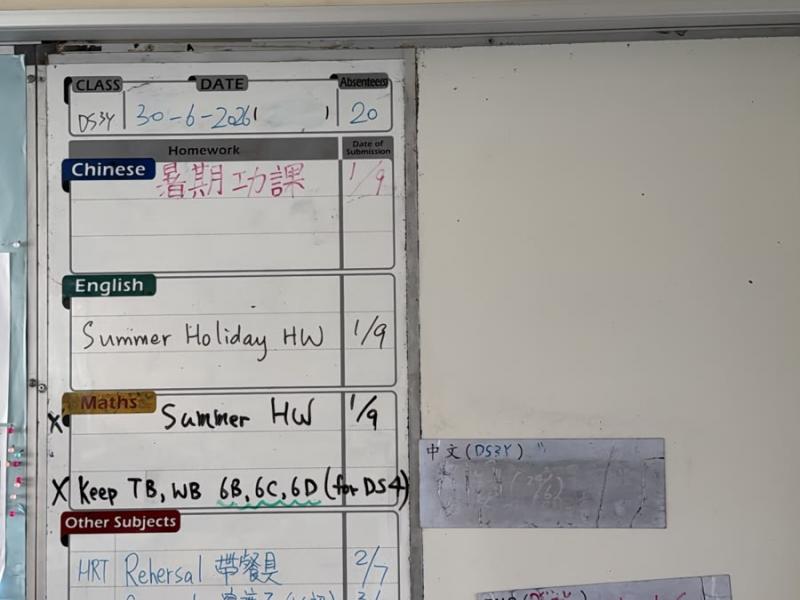 CLASS DATE Absentees
DS3Y 30-6-2026 ( ) 20
Homework Date of Submission
Chinese 暑期功課 1/9
English
Summer Holiday HW 1/9
Maths Summer HW 1/9
X
X Keep TB, WB 6B, 6C, 6D (for DS4)
Other Subjects
HRT Rehersal 帶餐具 2/7
中文 (DS3Y)